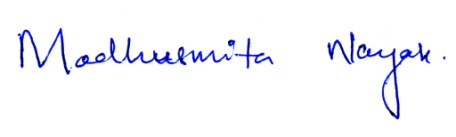 Madhusmita Nayak.